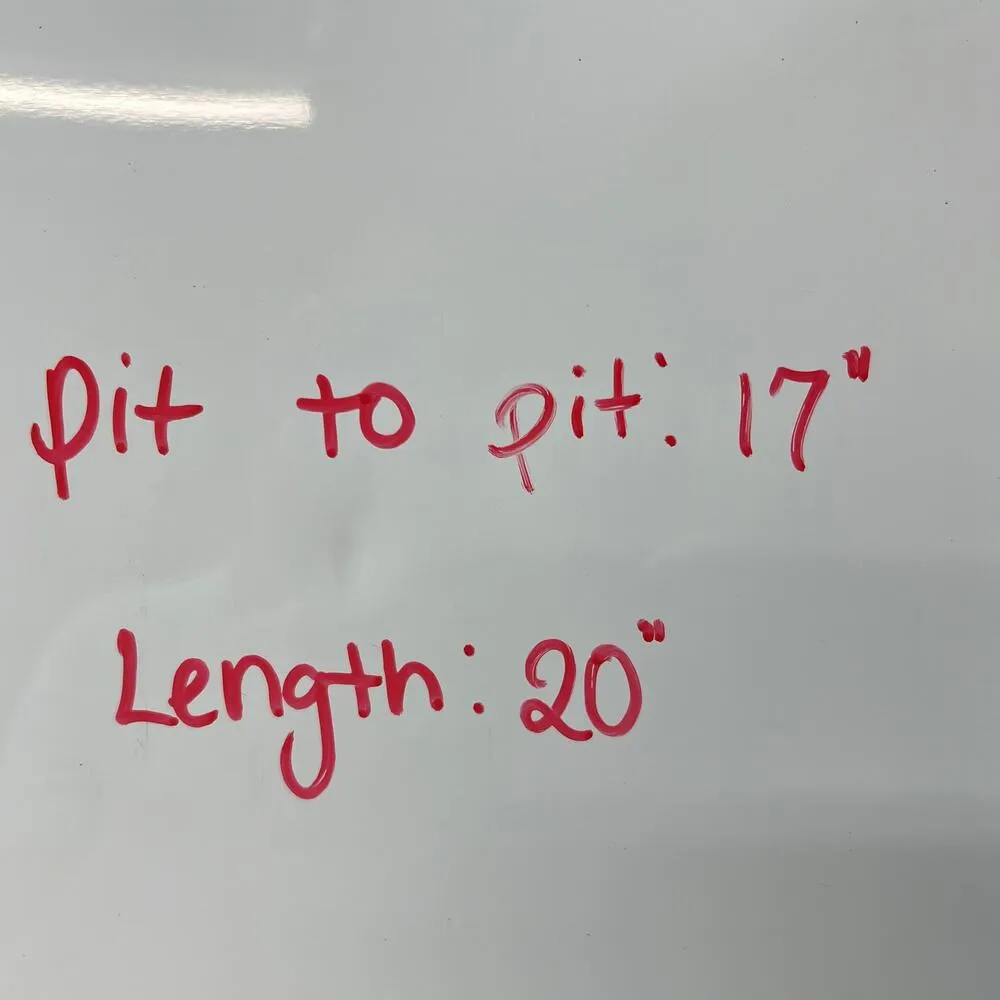 pit to pit: 17"
Length: 20"